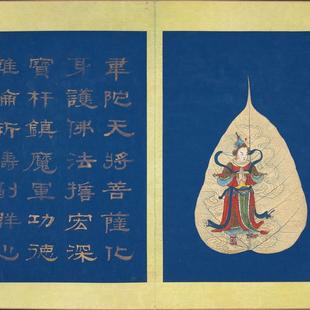 韋陀天將菩薩化
身護佛法誓宏深
寶杵鎮魔軍功德
難倫祈禱副群心